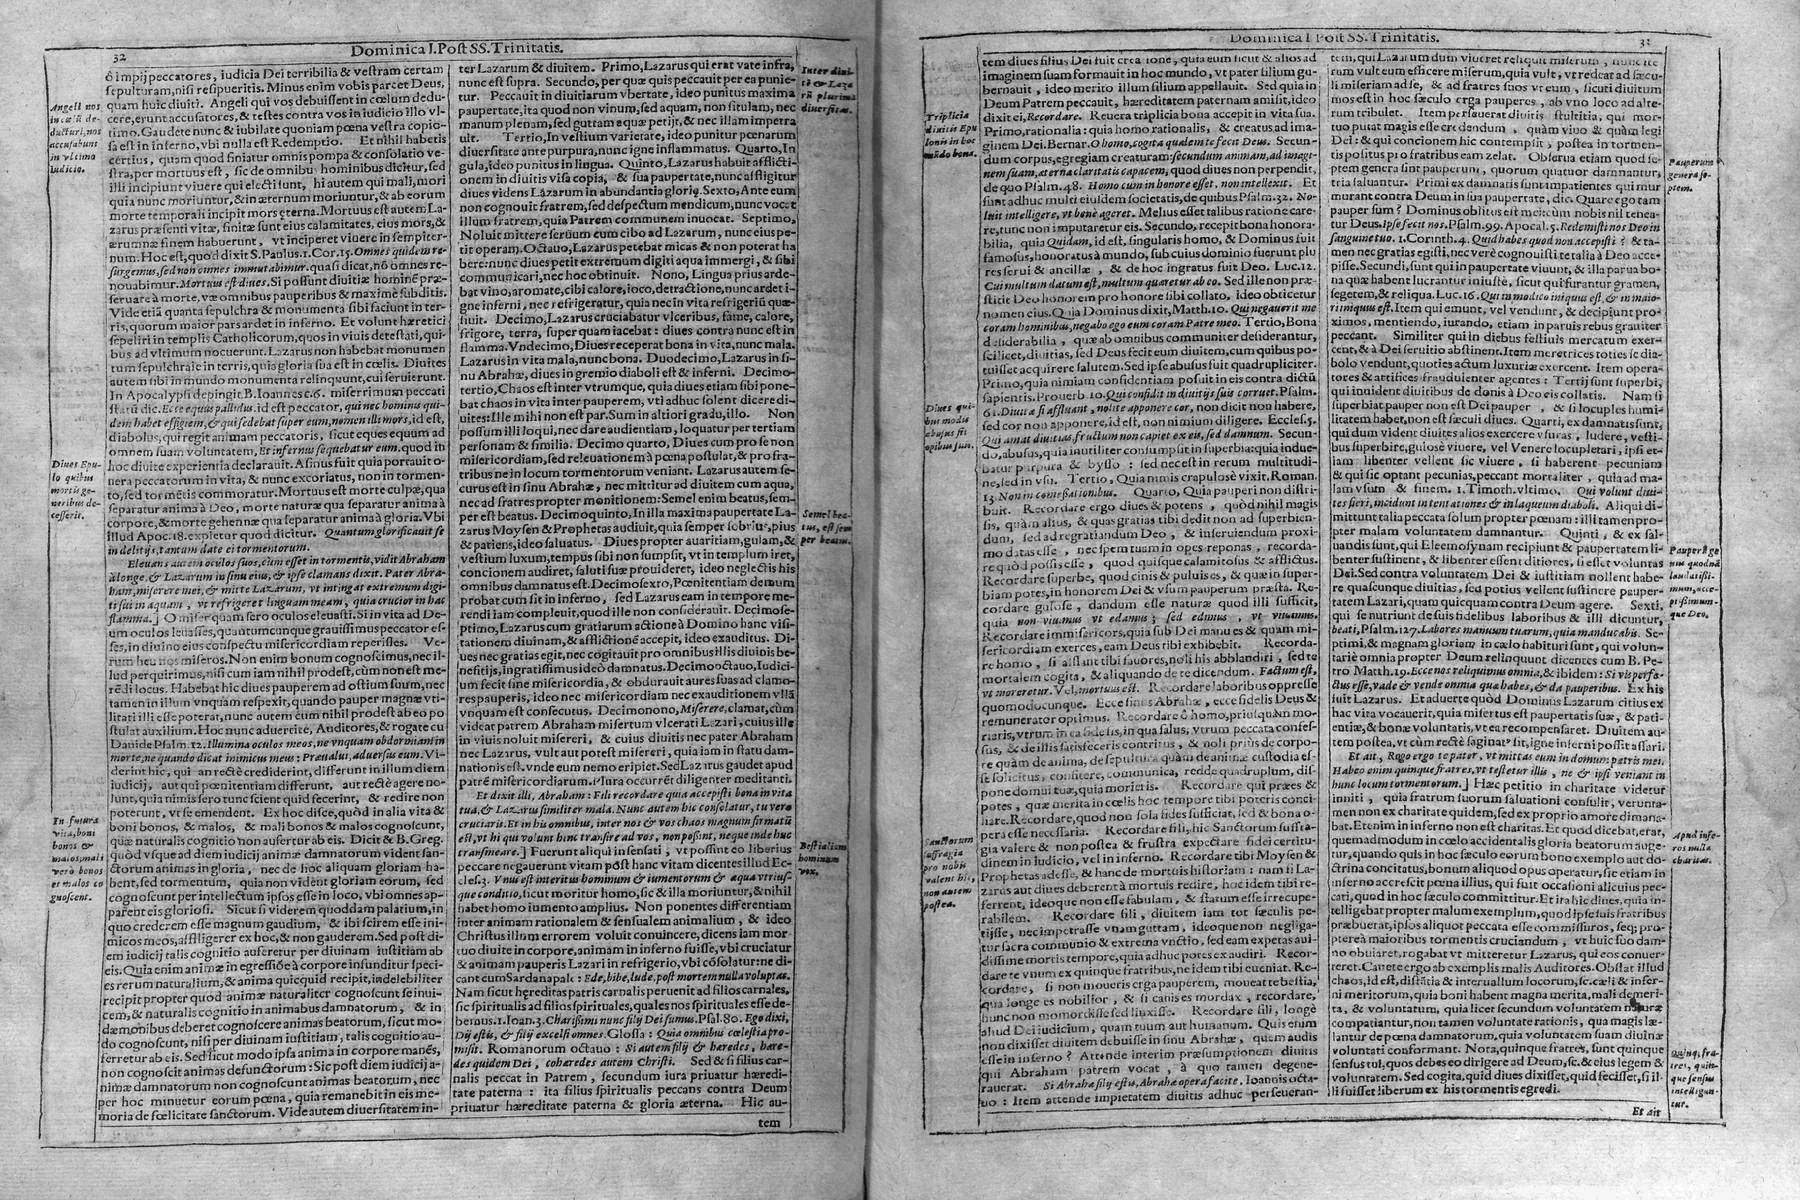 32
Dominica I. Post SS. Trinitatis.
ô impij peccatores, iudicia Dei terribilia & vestram certam
sepulturam, nisi resipueritis. Minus enim vobis parcet Deus,
quam huic diuiti. Angeli qui vos debuissent in cœlum dedu-
cere, erunt accusatores, & testes contra vos in iudicio illo vl-
timo. Gaudete nunc & iubilate quoniam pœna vestra copio-
sa est in inferno, vbi nulla est Redemptio. Et nihil habetis
certius, quam quod finiatur omnis pompa & consolatio ve-
stra, per mortuus est, sic de omnibus hominibus dicitur, sed
illi incipiunt viuere qui electi sunt, hi autem qui mali, mori
quia nunc moriuntur, & in æternum moriuntur, & ab eorum
morte temporali incipit mors ęterna. Mortuus est autem La-
zarus præsenti vitæ, finitæ sunt eius calamitates, eius mors, &
ærumnæ finem habuerunt, vt inciperet viuere in sempiter-
num. Hoc est, quod dixit S. Paulus. 1. Cor. 15. Omnes quidem re-
surgemus, sed non omnes immutabimur. quasi dicat, nō omnes re-
nouabimur. Mortuus est diues. Si possunt diuitiæ hominē præ-
seruare à morte, væ omnibus pauperibus & maximè subditis.
Vide etiā quanta sepulchra & monumenta sibi faciunt in ter-
ris, quorum maior pars ardet in inferno. Et volunt hæretici
sepeliri in templis Catholicorum, quos in viuis detestati, qui-
bus ad vltimum nocuerunt. Lazarus non habebat monumen
tum sepulchrale in terris, quia gloria sua est in cœlis. Diuites
autem sibi in mundo monumenta relinquunt, cui seruierunt.
In Apocalypsi depingit B. Ioannes c. 6. miserrimum peccati
statū dic. Ecce equus pallidus. id est peccator, qui nec hominis qui-
dem habet effigiem, & qui sedebat super eum, nomen illi mors, id est,
diabolus, qui regit animam peccatoris, sicut eques equum ad
omnem suam voluntatem, Et infernus sequebatur eum. quod in
hoc diuite experientia declarauit. Asinus fuit quia portauit o-
nera peccatorum in vita, & nunc excoriatus, non in tormen-
to, sed tormētis commoratur. Mortuus est morte culpæ, qua
separatur anima à Deo, morte naturæ qua separatur anima à
corpore, & morte gehennæ qua separatur anima à gloria. Vbi
illud Apoc. 18. expletur quod dicitur. Quantum glorificauit se
in delitijs, tantum date ei tormentorum.
Eleuans autem oculos suos, cum esset in tormentis, vidit Abraham
à longe, & Lazarum in sinu eius, & ipse clamans dixit. Pater Abra-
ham, miserere mei, & mitte Lazarum, vt intingat extremum digi-
ti sui in aquam, vt refrigeret linguam meam, quia crucior in hac
flamma.] O miser quam sero oculos eleuasti. Si in vita ad De-
um oculos leuasses, quantumcunque grauissimus peccator es-
ses, in diuino eius conspectu misericordiam reperisses. Ve-
rum heu nos miseros. Non enim bonum cognoscimus, nec il-
lud perquirimus, nisi cum iam nihil prodest, cùm non est me-
rēdi locus. Habebat hic diues pauperem ad ostium suum, nec
tamen in illum vnquam respexit, quando pauper magnæ vti-
litati illi esse poterat, nunc autem cùm nihil prodest ab eo po
stulat auxilium. Hoc nunc aduertite, Auditores, & rogate cu
Dauide Psalm. 12. Illumina oculos meos, ne vnquam obdormiant in
morte, ne quando dicat inimicus meus: Præualui, aduersus eum. Vi-
derint hic, qui an rectè crediderint, differunt in illum diem
iudicij, aut qui pœnitentiam differunt, aut rectè agere no-
lunt, quia nimis sero tunc scient quid fecerint, & redire non
poterunt, vt se emendent. Ex hoc disce, quòd in alia vita &
boni bonos, & malos, & mali bonos & malos cognoscunt,
quæ naturalis cognitio non aufertur ab eis. Dicit & B. Greg.
quòd vsque ad diem iudicij animæ damnatorum vident san-
ctorum animas in gloria, nec de hoc aliquam gloriam ha-
bent, sed tormentum, quia non vident gloriam eorum, sed
cognoscunt per intellectum ipsos esse in loco, vbi omnes ap-
parent eis gloriosi. Sicut si viderem quoddam palatium, in
quo crederem esse magnum gaudium, & ibi scirem esse ini-
micos meos, affligerer ex hoc, & non gauderem. Sed post di-
em iudicij talis cognitio auferetur per diuinam iustitiam ab
eis. Quia enim animæ in egressiōe à corpore infunditur speci-
es rerum naturalium, & anima quicquid recipit, indelebiliter
recipit propter quod animæ naturaliter cognoscunt se inui-
cem, & naturalis cognitio in animabus damnatorum, & in
dæmonibus deberet cognoscere animas beatorum, sicut mo-
do cognoscunt, nisi per diuinam iustitiam, talis cognitio au-
ferretur ab eis. Sed sicut modo ipsa anima in corpore manēs,
non cognoscit animas defunctorum: Sic post diem iudicij a-
nimæ damnatorum non cognoscunt animas beatorum, nec
per hoc minuetur eorum pœna, quia remanebit in eis me-
moria de fœlicitate sanctorum. Vide autem diuersitatem in-
Angeli nos
in cœlū de-
ducturi, nos
accusabunt
in vltimo
iudicio.
Diues Epu-
lo quibus
mortis ge-
neribus de-
cesserit.
In futura
vita, boni
bonos &
malos, mali
verò bonos
et malos co
gnoscent.
ter Lazarum & diuitem. Primo, Lazarus qui erat vate infra,
nunc est supra. Secundo, per quæ quis peccauit per ea punie-
tur. Peccauit in diuitiarum vbertate, ideo punitus maxima
paupertate, ita quod non vinum, sed aquam, non situlam, nec
manum plenam, sed guttam aquæ petijt, & nec illam impetra
uit. Tertio, In vestium varietate, ideo punitur pœnarum
diuersitate ante purpura, nunc igne inflammatus. Quarto, In
gula, ideo punitus in lingua. Quinto, Lazarus habuit afflicti-
onem in diuitis visa copia, & sua paupertate, nunc affligitur
diues videns Lazarum in abundantia glorię. Sexto, Ante eum
non cognouit fratrem, sed despectum mendicum, nunc vocet
illum fratrem, quia Patrem communem inuocat. Septimo,
Noluit mittere seruum cum cibo ad Lazarum, nunc eius pe-
tit operam. Octauo, Lazarus petebat micas & non poterat ha
bere: nunc diues petit extremum digiti aqua immergi, & sibi
communicari, nec hoc obtinuit. Nono, Lingua prius arde-
bat vino, aromate, cibi calore, ioco, detractione, nunc ardet i-
gne inferni, nec refrigeratur, quia nec in vita refrigeriū quæ-
siuit. Decimo, Lazarus cruciabatur vlceribus, fame, calore,
frigore, terra, super quam iacebat: diues contra nunc est in
flamma. Vndecimo, Diues receperat bona in vita, nunc mala.
Lazarus in vita mala, nunc bona. Duodecimo, Lazarus in si-
nu Abrahæ, diues in gremio diaboli est & inferni. Decimo-
tertio, Chaos est inter vtrumque, quia diues etiam sibi pone-
bat chaos in vita inter pauperem, vti adhuc solent dicere di-
uites: Ille mihi non est par. Sum in altiori gradu, illo. Non
possum illi loqui, nec dare audientiam, loquatur per tertiam
personam & similia. Decimo quarto, Diues cum pro se non
misericordiam, sed releuationem à pœna postulat, & pro fra-
tribus ne in locum tormentorum veniant. Lazarus autem se-
curus est in sinu Abrahæ, nec mittitur ad diuitem cum aqua,
nec ad fratres propter monitionem: Semel enim beatus, sem-
per est beatus. Decimoquinto, In illa maxima paupertate La-
zarus Moysen & Prophetas audiuit, quia semper sobrius, pius
& patiens, ideo saluatus. Diues propter auaritiam, gulam, &
vestium luxum, tempus sibi non sumpsit, vt in templum iret,
concionem audiret, saluti suæ prouideret, ideo neglectis his
omnibus damnatus est. Decimosexto, Pœnitentiam demum
probat cum sit in inferno, sed Lazarus eam in tempore me-
rendi iam compleuit, quod ille non considerauit. Decimose-
ptimo, Lazarus cum gratiarum actione à Domino hanc visi-
tationem diuinam, & afflictionē accepit, ideo exauditus. Di-
ues nec gratias egit, nec cogitauit pro omnibus illis diuinis be-
nefitijs, ingratissimus ideò damnatus. Decimooctauo, Iudici-
um fecit sine misericordia, & obdurauit aures suas ad clamo-
res pauperis, ideo nec misericordiam nec exauditionem vllā
vnquam est consecutus. Decimonono, Miserere, clamat, cùm
videat patrem Abraham misertum vlcerati Lazari, cuius ille
in viuis noluit misereri, & cuius diuitis nec pater Abraham
nec Lazarus, vult aut potest misereri, quia iam in statu dam-
nationis est. vnde eum nemo eripiet. Sed Lazarus gaudet apud
patrē misericordiarum. Plura occurrēt diligenter meditanti.
Et dixit illi, Abraham: Fili recordare quia accepisti bona in vita
tua, & Lazarus similiter mala. Nunc autem hic consolatur, tu verò
cruciaris. Et in his omnibus, inter nos & vos chaos magnum firmatū
est, vt hi qui volunt hinc transire ad vos, non possint, neque inde huc
transmeare.] Fuerunt aliqui insensati, vt possint eo liberius
peccare negauerunt vitam pòst hanc vitam dicentes illud Ec-
cles. 3. Vnus est interitus hominum & iumentorum & æqua vtrius-
que conditio, sicut moritur homo, sic & illa moriuntur, & nihil
habet homo iumento amplius. Non ponentes differentiam
inter animam rationalem & sensualem animalium, & ideo
Christus illum errorem voluit conuincere, dicens iam mor-
tuo diuite in corpore, animam in inferno fuisse, vbi cruciatur
& animam pauperis Lazari in refrigerio, vbi cōsolatur: ne di-
cant cum Sardanapale: Ede, bibe, lude, post mortem nulla voluptas.
Nam sicut hęreditas patris carnalis peruenit ad filios carnales,
sic spiritualis ad filios spirituales, quales nos spirituales esse de-
bemus. 1. Ioan. 3. Charissimi nunc filij Dei sumus. Psal. 80. Ego dixi,
Dij estis, & filij excelsi omnes. Glossa: Quia omnibus cœlestia pro-
misit. Romanorum octauo: Si autem filij & hæredes, hære-
des quidem Dei, cohæredes autem Christi. Sed & si filius car-
nalis peccat in Patrem, secundum iura priuatur hæredi-
tate paterna: ita filius spiritualis peccans contra Deum
priuatur hæreditate paterna & gloria æterna. Hic au-
tem
Inter diui-
tē & Laza
rū plurimæ
diuersitas.
Semel bea-
tus, est sem
per beatus.
Bestialium
hominum
vox.
Dominica I Post SS. Trinitatis.
tem diues filius Dei fuit creatione, quia eum sicut & alios ad
imaginem suam formauit in hoc mundo, vt pater filium gu-
bernauit, ideo merito illum filium appellauit. Sed quia in
Deum Patrem peccauit, hæreditatem paternam amisit, ideo
dixit ei, Recordare. Reuera triplicia bona accepit in vita sua.
Primo, rationalia: quia homo rationalis, & creatus ad ima-
ginem Dei. Bernar. O homo, cogita qualem te fecit Deus. Secun-
dum corpus, egregiam creaturam: secundum animam, ad imagi-
nem suam, æternæ claritatis capacem, quod diues non perpendit,
de quo Psalm. 48. Homo cum in honore esset, non intellexit. Et
sunt adhuc multi eiusdem societatis, de quibus Psalm. 32. No-
luit intelligere, vt benè ageret. Melius esset talibus ratione care-
re, tunc non imputaretur eis. Secundo, recepit bona honora-
bilia, quia Quidam, id est, singularis homo, & Dominus fuit
famosus, honoratus à mundo, sub cuius dominio fuerunt plu
res serui & ancillæ, & de hoc ingratus fuit Deo. Luc. 12.
Cui multum datum est, multum quæretur ab eo. Sed ille non præ-
stitit Deo honorem pro honore sibi collato, ideo obticetur
nomen eius. Quia Dominus dixit, Matth. 10. Qui negauerit me
coram hominibus, negabo ego eum coram Patre meo. Tertio, Bona
desiderabilia, quæ ab omnibus communiter desiderantur,
scilicet, diuitias, sed Deus fecit eum diuitem, cum quibus po-
tuisset acquirere salutem. Sed ipse abusus fuit quadrupliciter.
Primo, quia nimiam confidentiam posuit in eis contra dictū
sapientis. Prouerb. 10. Qui confidit in diuitijs suis corruet. Psalm.
61. Diuitiæ si affluant, nolite apponere cor, non dicit non habere,
sed cor non apponere, id est, non nimium diligere. Eccles. 5.
Qui amat diuitias, fructum non capiet ex eis, sed damnum. Secun-
do, abusus, quia inutiliter consumpsit in superbia: quia indue-
batur purpura & bysso: sed nec est in rerum multitudi-
ne, sed in vsu. Tertio, Quia nimis crapulosè vixit. Roman.
13. Non in comessationibus. Quarto, Quia pauperi non distri-
buit. Recordare ergo diues & potens, quòd nihil magis
sis, quàm alius, & quas gratias tibi dedit non ad superbien-
dum, sed ad regratiandum Deo, & inseruiendum proxi-
mo datas esse, nec spem tuam in opes reponas, recorda-
re quòd possis esse, quod quisque calamitosus & afflictus.
Recordare superbe, quod cinis & puluis es, & quæ in super-
biam potes, in honorem Dei & vsum pauperum præsta. Re-
cordare gulose, dandum esse naturæ quod illi sufficit,
quia non viuimus vt edamus; sed edimus, vt viuamus.
Recordare immisericors, quia sub Dei manu es & quam mi-
sericordiam exerces, eam Deus tibi exhibebit. Recorda-
re homo, si assunt tibi fauores, noli his abblandiri, sed te
mortalem cogita, & aliquando de te dicendum. Factum est,
vt moreretur. Vel, mortuus est. Recordare laboribus oppresse
quomodocunque. Ecce sinus Abrahæ, ecce fidelis Deus &
remunerator optimus. Recordare ô homo, priusquàm mo-
riaris, vtrum in ea fide sis, in qua saluus, vtrum peccata confes-
sus, & de illis satisfeceris contritus, & noli prius de corpo-
re quàm de anima, de sepultura quàm de animæ custodia es-
se solicitus, confitere, communica, redde quadruplum, dis-
pone domui tuæ, quia morieris. Recordare qui præes &
potes, quæ merita in cœlis hoc tempore tibi poteris conci-
liare. Recordare, quod non sola fides sufficiat, sed & bona o-
pera esse necessaria. Recordare fili, hic Sanctorum suffra-
gia valere & non postea & frustra expectare fidei certitu-
dinem in iudicio, vel in inferno. Recordare tibi Moysen &
Prophetas adesse, & hanc de mortuis historiam: nam si La-
zarus aut diues deberent à mortuis redire, hoc idem tibi re-
ferrent, ideoque non esse fabulam, & statum esse irrecupe-
rabilem. Recordare fili, diuitem iam tot sæculis pe-
tijsse, nec impetrasse vnam guttam, ideoque non negliga-
tur sacra communio & extrema vnctio, sed eam expetas aui-
dissime mortis tempore, quia adhuc potes exaudiri. Recor-
dare te vnum ex quinque fratribus, ne idem tibi eueniat. Re-
cordare, si non moueris erga pauperem, moueat te bestia,
qua longe es nobilior, & si canis es mordax, recordare,
hunc non momordisse sed linxisse. Recordare fili, longè
aliud Dei iudicium, quam tuum aut humanum. Quis enim
non dixisset diuitem debuisse in sinu Abrahæ, quem audis
esse in inferno? Attende interim præsumptionem diuitis
qui Abraham patrem vocat, à quo tamen degene-
rauerat. Si Abrahæ filij estis, Abrahæ opera facite. Ioannis octa-
uo: Item attende impietatem diuitis adhuc perseueran-
Triplicia
diuitis Epu
lonis in hoc
mūdo bona.
Diues qui-
bus modis
abusus sit
opibus suis.
Sanctorum
suffragia
pro nobis
valent hic,
non autem
postea.
tem, qui Lazarum dum viueret reliquit miserum, nunc ite
rum vult eum efficere miserum, quia vult, vt redeat ad sæcu-
li miseriam ad se, & ad fratres suos vt eum, sicuti diuitum
mos est in hoc sæculo erga pauperes, ab vno loco ad alte-
rum tribulet. Item perseuerat diuitis stultitia, qui mor-
tuo putat magis esse credendum, quàm viuo & quàm legi
Dei: & qui concionem hic contempsit, postea in tormen-
tis positus pro fratribus eam zelat. Obserua etiam quod se-
ptem genera sint pauperum, quorum quatuor damnantur,
tria saluantur. Primi ex damnatis sunt impatientes qui mur
murant contra Deum in sua paupertate, dic. Quare ego tam
pauper sum? Dominus oblitus est mei: cùm nobis nil tenea-
tur Deus. Ipse fecit nos. Psalm. 99. Apocal. 5. Redemisti nos Deo in
sanguine tuo. 1. Corinth. 4. Quid habes quod non accepisti? & ta-
men nec gratias egisti, nec verè cognouisti te talia à Deo acce-
pisse. Secundi, sunt qui in paupertate viuunt, & illa parua bo-
na quæ habent lucrantur iniustè, sicut qui furantur gramen,
segetem, & reliqua. Luc. 16. Qui in modico iniquus est, & in maio-
ri iniquus est. Item qui emunt, vel vendunt, & decipiunt pro-
ximos, mentiendo, iurando, etiam in paruis rebus grauiter
peccant. Similiter qui in diebus festiuis mercatum exer-
cent, & à Dei seruitio abstinent. Item meretrices toties se dia-
bolo vendunt, quoties actum luxuriæ exercent. Item opera-
tores & artifices fraudulenter agentes: Tertij sunt superbi,
qui inuident diuitibus de donis à Deo eis collatis. Nam si
superbiat pauper non est Dei pauper, & si locuples humi-
litatem habet, non est sæculi diues. Quarti, ex damnatis sunt,
qui dum vident diuites alios exercere vsuras, ludere, vesti-
bus superbire, gulosè viuere, vel Venere locupletari, ipsi et-
iam libenter vellent sic viuere, si haberent pecuniam
& qui sic optant pecunias, peccant mortaliter, quia ad ma-
lam vsum & finem. 1. Timoth. vltimo. Qui volunt diui-
tes fieri, incidunt in tentationes & in laqueum diaboli. Aliqui di-
mittunt talia peccata solum propter pœnam: illi tamen pro-
pter malam voluntatem damnantur. Quinti, & ex sal-
uandis sunt, qui Eleemosynam recipiunt & paupertatem li-
benter sustinent, & libenter essent ditiores, si esset voluntas
Dei. Sed contra voluntatem Dei & iustitiam nollent habe-
re quascunque diuitias, sed potius vellent sustinere pauper-
tatem Lazari, quam quicquam contra Deum agere. Sexti,
qui se nutriunt de suis fidelibus laboribus & illi dicuntur,
beati, Psalm. 127. Labores manuum tuarum, quia manducabis. Se-
ptimi, & magnam gloriam in cœlo habituri sunt, qui volun-
tariè omnia propter Deum relinquunt dicentes cum B. Pe-
tro Matth. 19. Ecce nos reliquimus omnia, & ibidem: Si vis perfe-
ctus esse, vade & vende omnia quæ habes, & da pauperibus. Ex his
fuit Lazarus. Et aduerte quòd Dominus Lazarum citius ex
hac vita vocauerit, quia misertus est paupertatis suæ, & pati-
entiæ, & bonæ voluntatis, vt ea recompensaret. Diuitem au-
tem postea, vt cùm rectè saginatus sit, igne inferni possit assari.
Et ait, Rogo ergo te pater, vt mittas eum in domum patris mei,
Habeo enim quinque fratres, vt testetur illis, ne & ipsi veniant in
hunc locum tormentorum.] Hæc petitio in charitate videtur
inniti, quia fratrum suorum saluationi consulit, verunta-
men non ex charitate quidem, sed ex proprio amore dimana-
bat. Etenim in inferno non est charitas. Et quod dicebat, erat,
quemadmodum in cœlo accidentalis gloria beatorum auge-
tur, quando quis in hoc sæculo eorum bono exemplo aut do-
ctrina concitatus, bonum aliquod opus operatur, sic etiam in
inferno accrescit pœna illius, qui fuit occasioni alicuius pec-
cati, quod in hoc sæculo committitur. Et ita hic diues, quia in-
telligebat propter malum exemplum, quod ipse suis fratribus
præbuerat, ipsos aliquot peccata esse commissuros, seq; pro-
pterea maioribus tormentis cruciandum, vt huic suo dam-
no obuiaret, rogabat vt mitteretur Lazarus, qui eos conuer-
teret. Cauete ergo ab exemplis malis Auditores. Obstat illud
chaos, id est, distātia & interuallum locorum, sc. cæli & infer-
ni meritorum, quia boni habent magna merita, mali demeri-
ta, & voluntatum, quia licet secundum voluntatem naturæ
compatiantur, non tamen voluntate rationis, qua magis læ-
tantur de pœna damnatorum, quia voluntatem suam diuinæ
voluntati conformant. Nota, quinque fratres, sunt quinque
sensus tui, quos debes eo dirigere ad Deum, sc. & eius legem &
voluntatem. Sed cogita, quid diues dixisset, quid fecisset, si il-
li fuisset liberum ex his tormentis egredi.
Et ait
Pauperum
genera se-
ptem.
Apud infe-
ros nulla
charitas.
Quinq; fra-
tres, quin-
que sensus
intelligun-
tur.